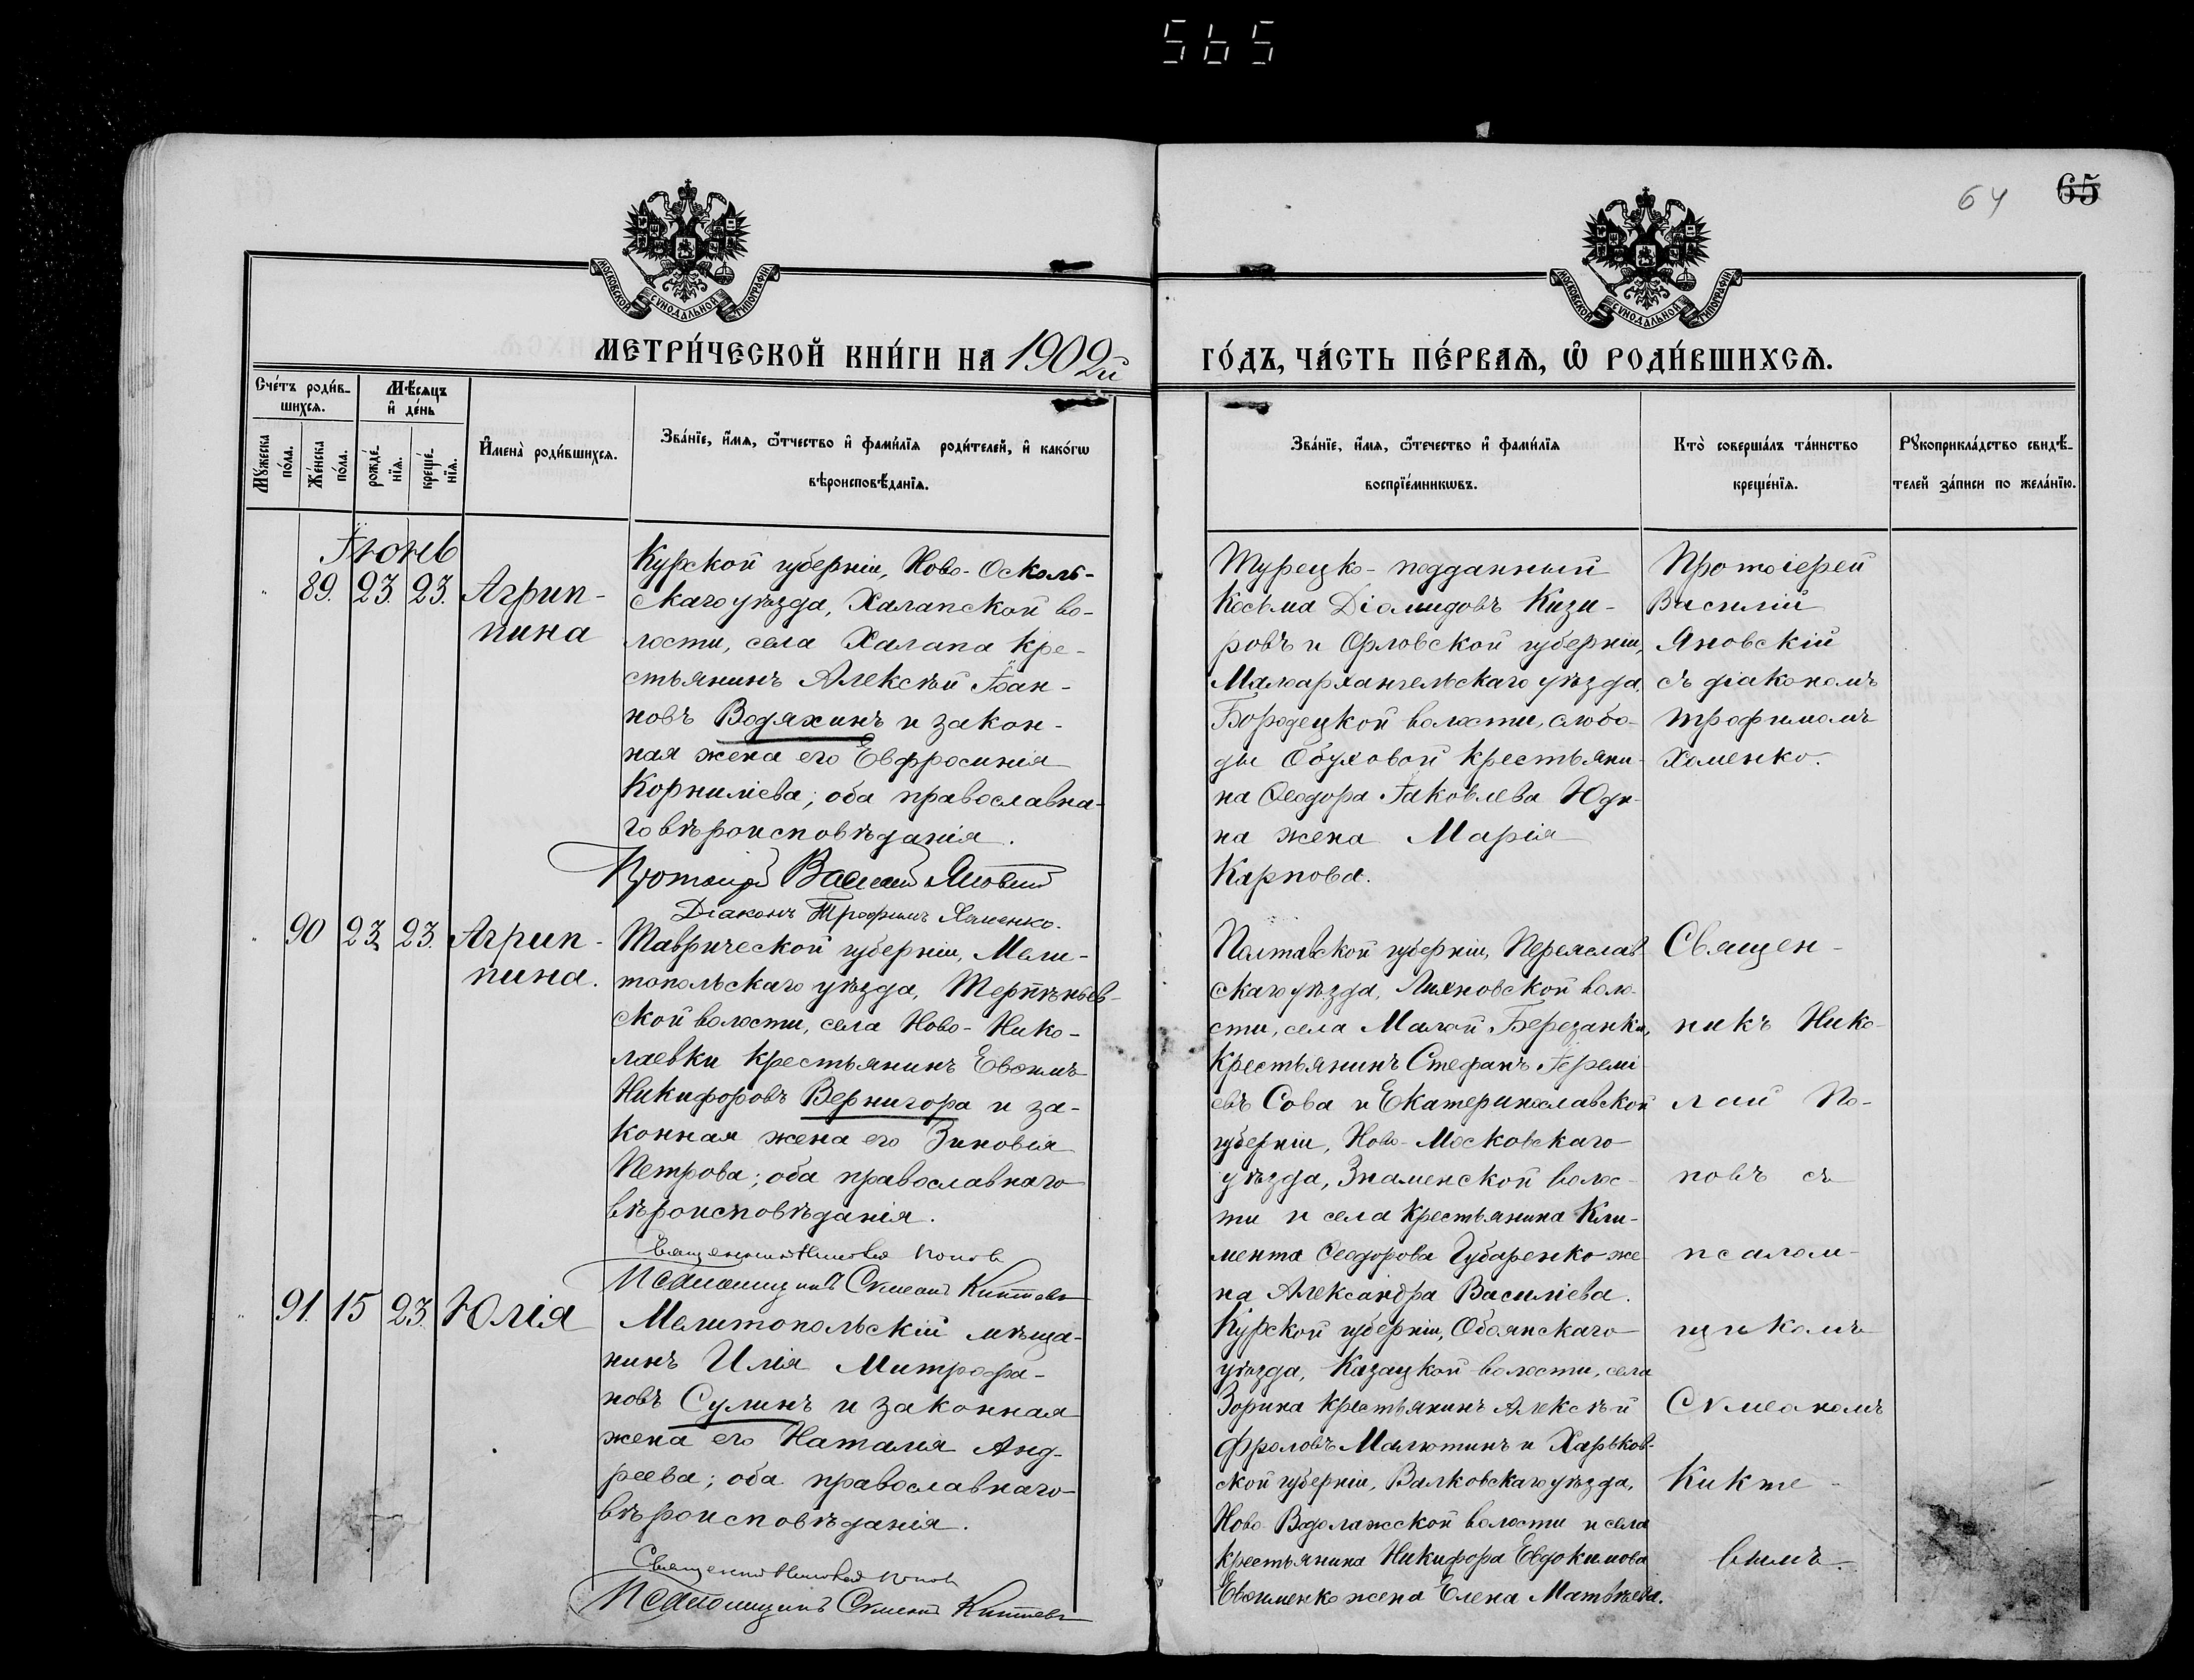 565
64 65
МОСКОВСКОЙ СѴНОДАЛЬНОЙ ТИПОГРАФІИ
МОСКОВСКОЙ СѴНОДАЛЬНОЙ ТИПОГРАФІИ
МЕТРИ́ЧЕСКОЙ КНИ́ГИ НА 1902й
ГО́ДЪ, ЧА́СТЬ ПЕ́РВАѦ, Ѿ РОДИ́ВШИХСѦ.
Сче́тъ роди́в-
шихсѧ.
Мѣ́сѧцъ
и҆ де́нь
Мꙋ́жеска
по́ла.
Же́нска
по́ла.
рожде́-
нїѧ.
креще́-
нїѧ.
И҆мена̀ роди́вшихсѧ.
Зва́нїе, и҆́мѧ, ѻ҆́тчество и҆ фами́лїѧ роди́телей, и҆ како́гѡ
вѣроисповѣ́данїѧ.
Зва́нїе, и҆́мѧ, ѻ҆́течество и҆ фами́лїѧ
воспрїе́мникѡвъ.
Кто̀ соверша́лъ та́инство
креще́нїѧ.
Рꙋкоприкла́дство свидѣ́-
телей за́писи по жела́нїю.
Іюнь
89. 23. 23. Агрип-
пина
Курской губерніи, Ново-Осколь-
скаго уѣзда, Халапской во-
лости, села Халапа кре-
стьянинъ Алексѣй Іоан-
новъ Водяхинъ и закон-
ная жена его Евфросинія
Корниліева; оба православна-
го вѣроисповѣданія.
Протоіерей Василій Яновскій
Діаконъ Трофимъ Хоменко.
Турецко-подданный
Косьма Діомидовъ Кизи-
ровъ и Орловской губерніи,
Малоархангельскаго уѣзда,
Бородецкой волости, слобо-
ды Обуховой крестьяни-
на Ѳеодора Іаковлева Юди-
на жена Марія
Карпова.
Протоіерей
Василій
Яновскій
съ діакономъ
Трофимомъ
Хоменко.
90 23. 23. Агрип-
пина.
Таврической губерніи, Мели-
топольскаго уѣзда, Терпѣньев-
ской волости, села Ново-Нико-
лаевки крестьянинъ Евѳимъ
Никифоровъ Вернигора и за-
конная жена его Зиновія
Петрова; оба православнаго
вѣроисповѣданія.
Священникъ Николай Поповъ
Псаломщикъ Симеонъ
Полтавской губерніи, Переяслав-
скаго уѣзда, волo-
сти, села Малой Березанки,
крестьянинъ Стефанъ Іеремі-
евъ Сова и Екатеринославской
губерніи, Ново-Московскаго
уѣзда, Знаменской волос-
ти и села крестьянина Кли-
мента Ѳеодорова Губаренко же-
на Александра Василіева.
Священ-
никъ Нико-
лай По-
повъ съ
псалом-
91. 15 23. Юлія
Мелитопольскій мѣща-
нинъ Илія Митрофа-
новъ Сулинъ и законная
жена его Наталія Анд-
реева; оба православнаго
вѣроисповѣданія.
Священникъ Николай Поповъ
Псаломщикъ Симеонъ
Курской губерніи, Обоянскаго
уѣзда, Казацкой волости, села
Зорина крестьянинъ Алексѣй
Фроловъ Малютинъ и Харьков-
ской губерніи, Валковскаго уѣзда,
Ново-Водолажской волости и села
крестьянина Никифора Евдокимова
Евѳименко жена Елена Матвѣева.
щикомъ
Симеономъ
Никите-
вымъ.